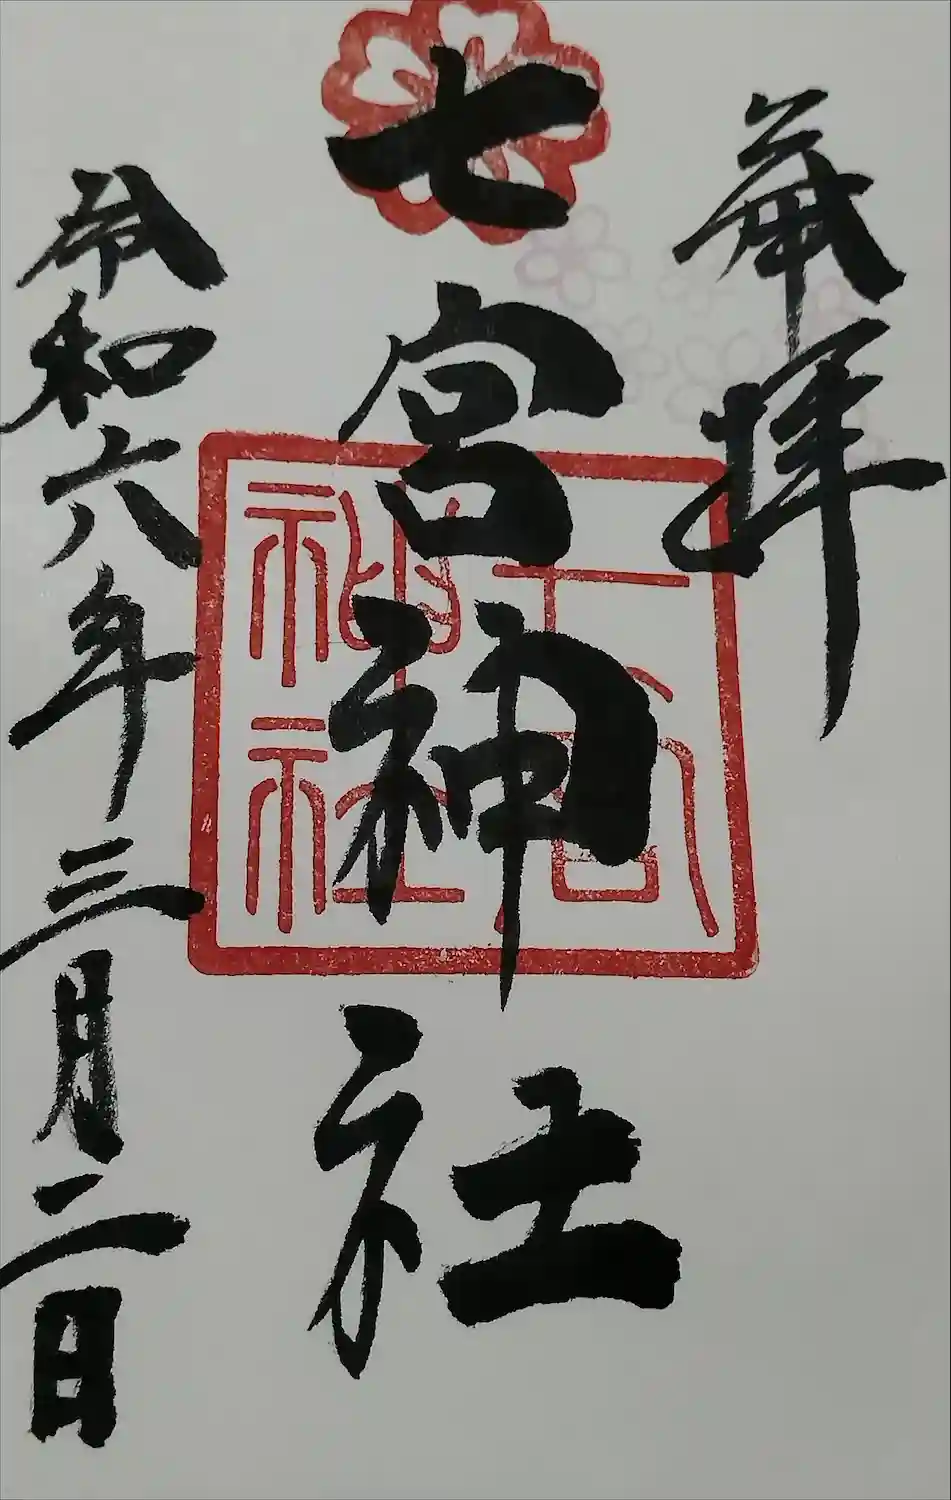 奉拝
七宮神社
七宮神社
令和六年三月二日